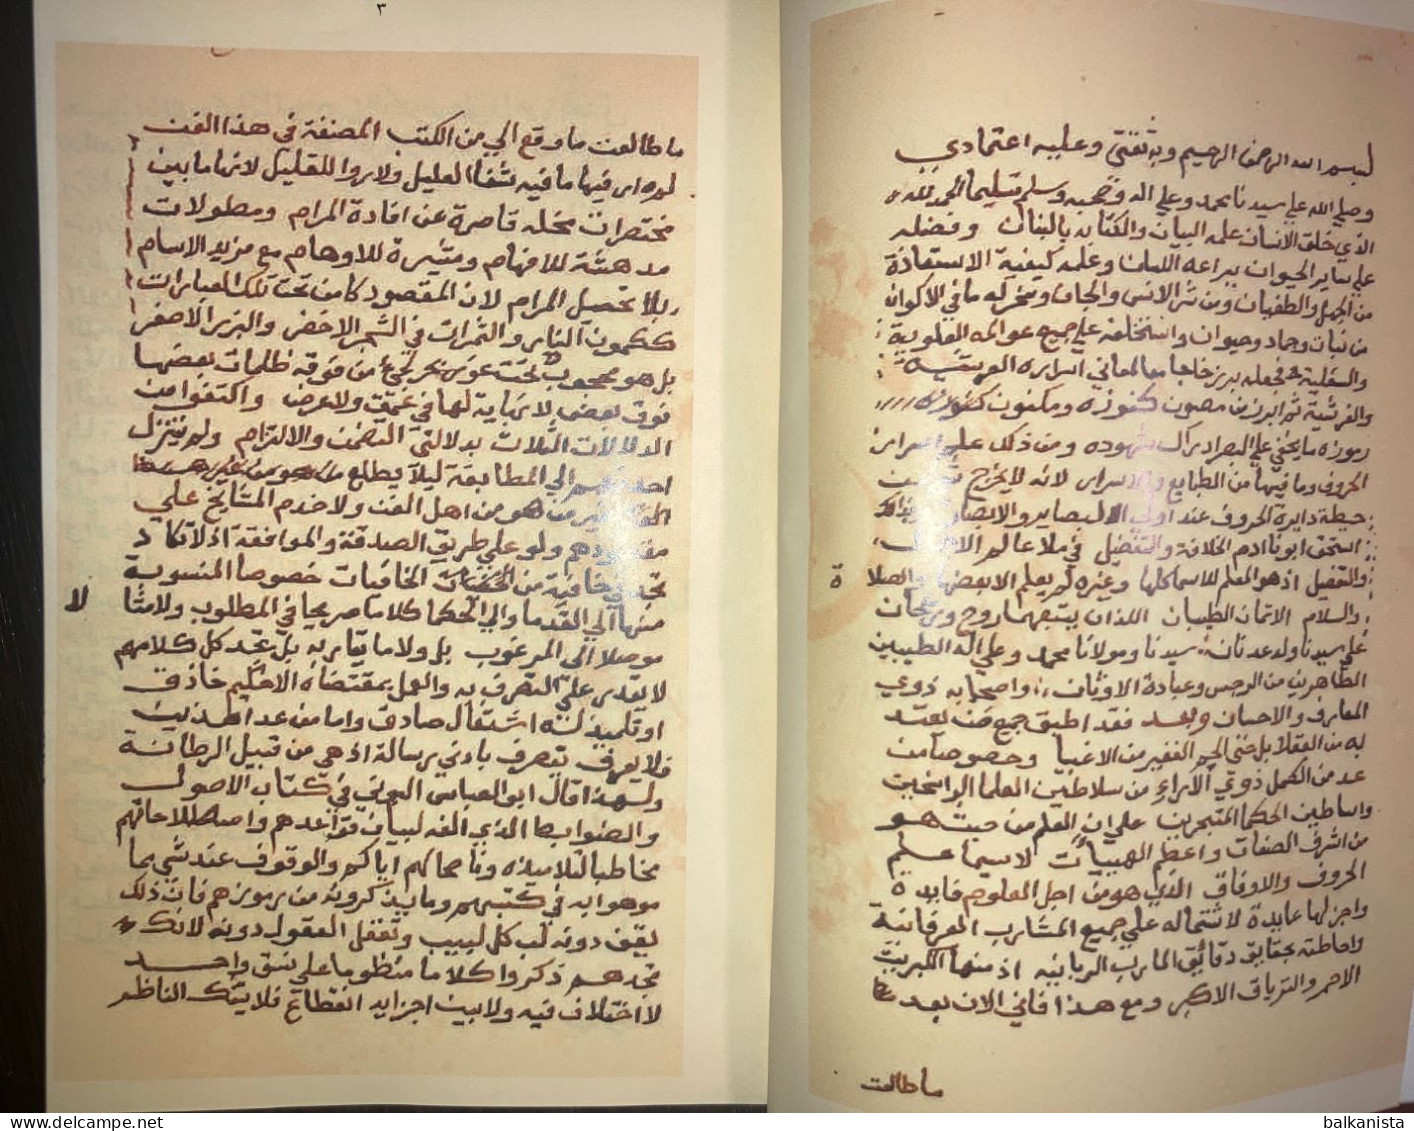 لبسم الله الرحمن الرحيم وبه ثقتي وعليه اعتمادي
وصلي الله علي سيدنا محمد وعلي اله وصحبه وسلم تسليما الحمد لله
الذي خلق الانسان علمه البيان والكتابه بالبنان وفضله
علي ساير الحيوان ببراعه اللسان وعلمه كيفية الاستفادة
من الجهل والطغيان ومن شر الانس والجان وسخر له ما في الاكوان
من نبات وجماد وحيوان واستخلفه علي جميع عوالمه العلوية
والسفلية فجعله برزخا جامعا لمعاني اسراره العرشية
والفرشية ثم ابرز من مصون كنوزه ومكنون
رموزه ما يخفي علي ادراك شهوده ومن ذلك علم اسرار
الحروف وما فيها من الطبايع والاسرار لانه لا يخرج
حيطة دايرة الحروف عند اولي البصاير والابصار
استحق ابونا ادم الخلافة والتفضيل في ملا عالم
والتفصيل اذ هو المعلم للاسما كلها وغيره لم يعلم الا بعضها والصلا
ة
والسلام الاتمان الطيبان اللذان يتبعهما روح وريحان
علي سيدنا ولد عدنان سيدنا ومولانا محمد وعلي اله الطيبين
الطاهرين من الرجس وعبادة الاوثان واصحابه ذوي
المعارف والاحسان وبعد فقد اطبق جميع من يعتد
به من العقلا بل حتي الجم الغفير من الاغبيا وخصوصا من
عد من الكمل ذوي الاراء من سلاطين العلما الراسخين
واساطين الحكما المتبحرين علي ان العلم من حيث هو
من اشرف الصفات واعظم الهبيات لاسيما علم
الحروف والاوفاق الذي هو من اجل العلوم فايده
واجزلها عايدة لاشتماله علي جميع المشارب العرفانية
واحاطته بحقايق دقائق المارب الربانيه اذ منها الكبريت
الاحمر والترياق الاكبر ومع هذا فاني الان بعد
ما طالعت
٣
ما طالعت ما وقع الي من الكتب المصنفة في هذا الفن
لم ار فيها ما فيه شفا العليل ولا روا للقليل لانها ما بين
مختصرات مخله قاصرة عن افادة المرام ومطولات
مدهشة للافهام ومثيرة للاوهام مع مزيد الاسام
بلا تحصيل المرام لان المقصود كامن تحت تلك العبارات
ككمون النار والثمرات في الشجر الاخضر والبزر الاصغر
بل هو محجوب تحت غوص بحر لجي من فوقه ظلمات بعضها
فوق بعض لا نهاية لها في عمق ولا عرض واكتفوا من
الدلالات الثلاث بدلالتي التضمن والالتزام ولم يتنزل
احد منهم الي المطابقة ليلا يطلع من هو من غير
غير من هو من اهل الفن ولا خدم المشايخ علي
مقصودهم ولو علي طريق الصدقة والموافقة اذ لا تكاد
تجد في خافية من الخافيات خصوصا المنسوبة
منها الي القدما والي الحكما كلاما صريحا في المطلوب ولا مثا
لا
موصلا الي المرغوب بل ولا ما يقاربه بل تجد كل كلامهم
لا يقدر علي التصرف به والعمل بمقتضاه الا حكيم حاذق
او تلميذ له اشتغال صادق واما من عدا هذين
فلا يعرف يتصرف بادني رسالة اذ هي من قبيل الرطانة
ولهذا قال ابو العباس البوني في كتاب الاصول
والضوابط الذي الفه لبيان قواعدهم واصطلاحاتهم
مخاطبا لتلاميذه وناصحا لهم اياكم والوقوف عند شي مما
موهوا به في كتبهم وما يذكرونه من رموزهم فان ذلك
يقف دونه لب كل لبيب وتغفل العقول دونه لانك
تجدهم ذكروا كلاما منظوما علي نسق واحد
لا اختلاف فيه ولا بين اجزايه انقطاع فلا يشك الناظر
balkanista